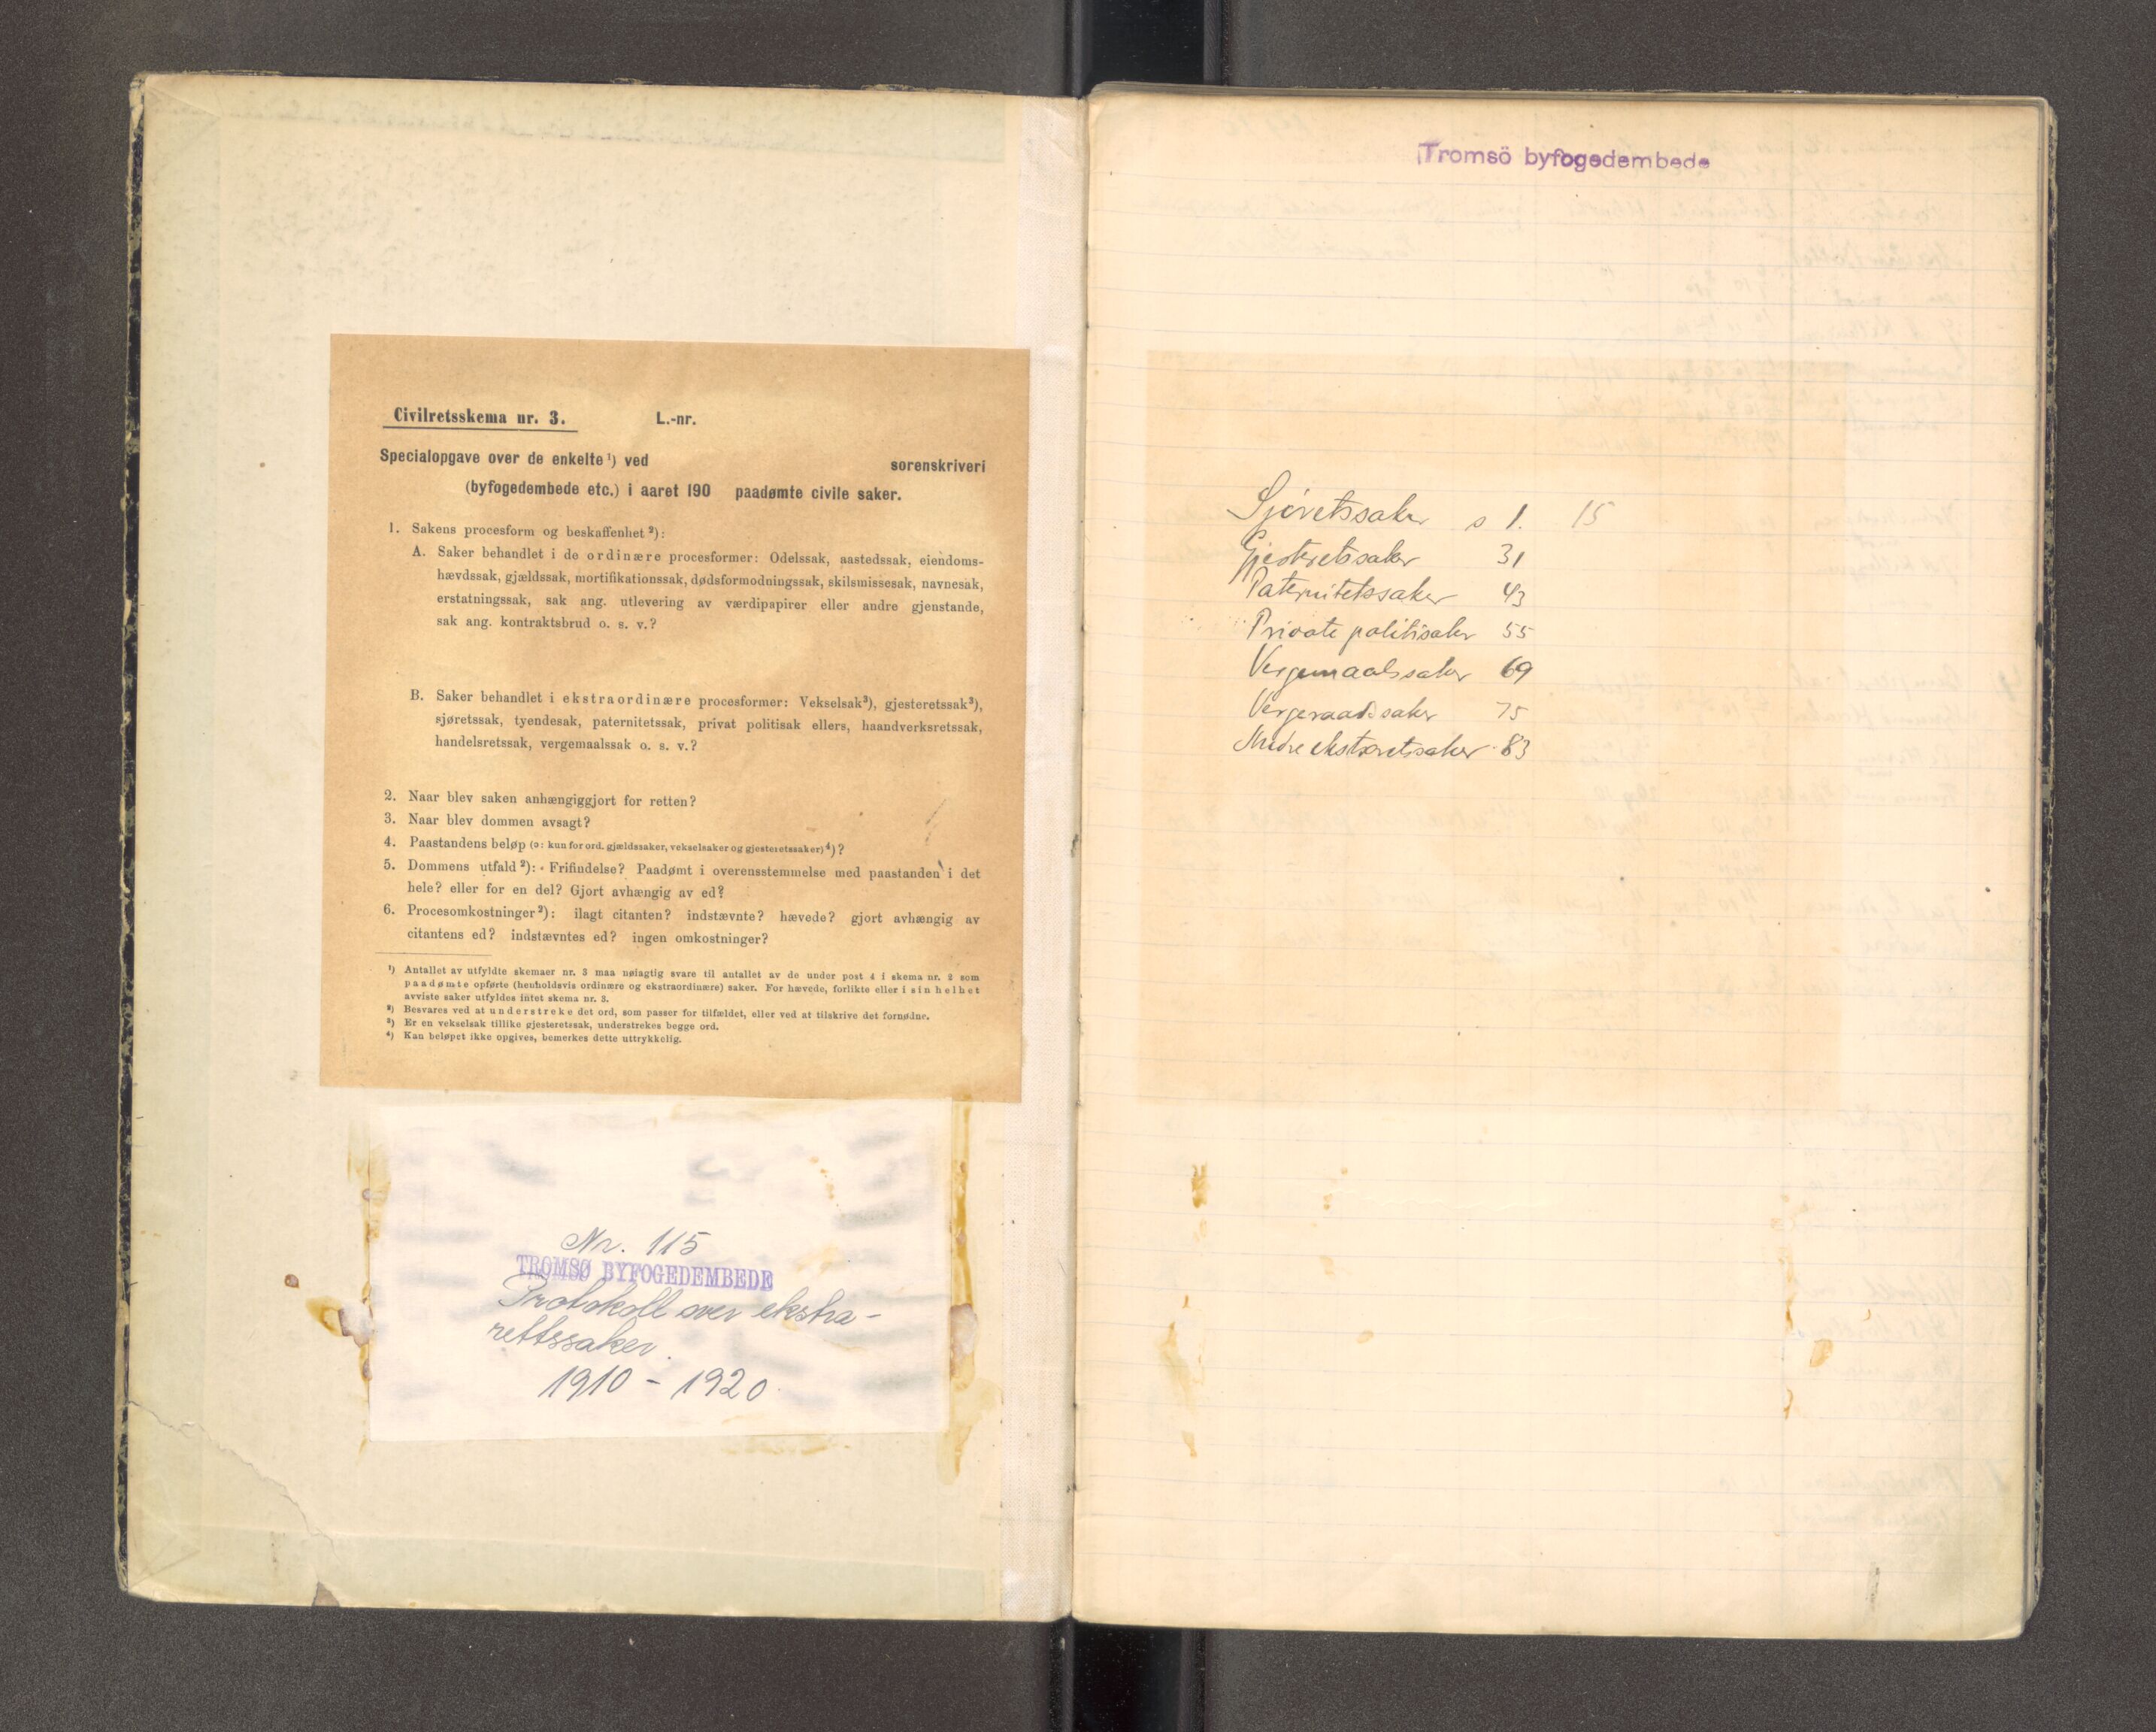 Civilretsskema nr. 3. L.-nr.
Specialopgave over de enkelte ¹) ved sorenskriveri
(byfogedembede etc.) i aaret 190 paadømte civile saker.
1. Sakens procesform og beskaffenhet ²):
A. Saker behandlet i de ordinære procesformer: Odelssak, aastedssak, eiendoms-
hævdssak, gjældssak, mortifikationssak, dødsformodningssak, skilsmissesak, navnesak,
erstatningssak, sak ang. utlevering av værdipapirer eller andre gjenstande,
sak ang. kontraktsbrud o. s. v.?
B. Saker behandlet i ekstraordinære procesformer: Vekselsak³), gjesteretssak³),
sjøretssak, tyendesak, paternitetssak, privat politisak ellers, haandverksretssak,
handelsretssak, vergemaalssak o. s. v.?
2. Naar blev saken anhængiggjort for retten?
3. Naar blev dommen avsagt?
4. Paastandens beløp (ɔ: kun for ord. gjældssaker, vekselsaker og gjesteretssaker)⁴)?
5. Dommens utfald ²): Frifindelse? Paadømt i overensstemmelse med paastanden i det
hele? eller for en del? Gjort avhængig av ed?
6. Procesomkostninger ²): ilagt citanten? indstævnte? hævede? gjort avhængig av
citantens ed? indstævntes ed? ingen omkostninger?
¹) Antallet av utfyldte skemaer nr. 3 maa nøiagtig svare til antallet av de under post 4 i skema nr. 2 som
paadømte opførte (henholdsvis ordinære og ekstraordinære) saker. For hævede, forlikte eller i sin helhet
avviste saker utfyldes intet skema nr. 3.
²) Besvares ved at understreke det ord, som passer for tilfældet, eller ved at tilskrive det fornødne.
³) Er en vekselsak tillike gjesteretssak, understrekes begge ord.
⁴) Kan beløpet ikke opgives, bemerkes dette uttrykkelig.
Nr. 115
TROMSØ BYFOGEDEMBEDE
Protokoll over ekstra-
rettssaker.
1910 - 1920
Tromsö byfogedembede
Sjöretssaker s 1. 15
Gjesteretssaker 31
Paternitetssaker 43
Private politisaker 55
Vergemaalssaker 69
Vergeraadssaker 75
Andre ekstraretssaker 83